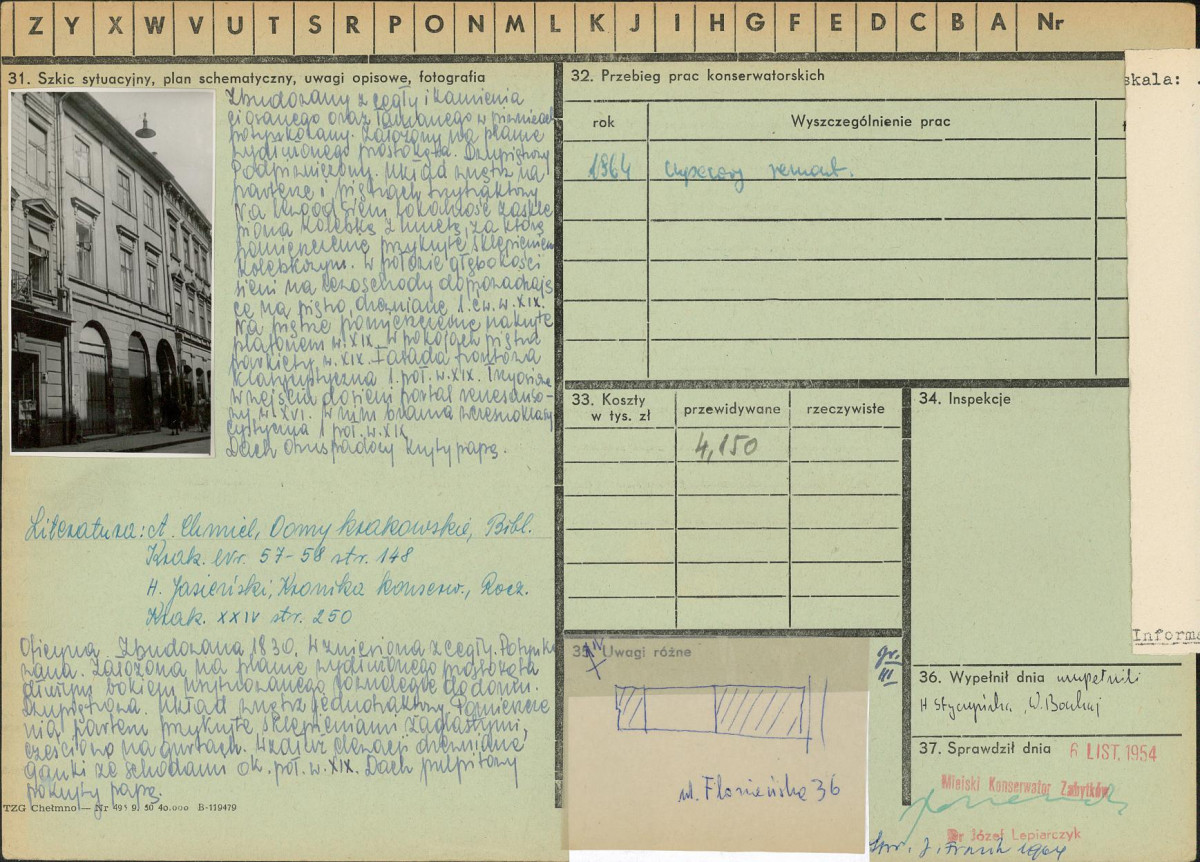 Z Y X W V U T S R P O N M L K J I H G F E D C B A Nr
31. Szkic sytuacyjny, plan schematyczny, uwagi opisowe, fotografia
Zbudowany z cegły i kamienia
ciosanego oraz łamanego w piwnicach
potynkowany. Założony na planie
wydłużonego prostokąta. Dwupiętrowy
Podpiwniczony. Układ wnętrz na
parterze i piętrach trzytraktowy
Na
piona kolebką z lunetą, za którą
pomieszczenie przykryte sklepieniem
kolebkowym. W połowie głębokości
sieni na schody doprowadzają
ce na piętro, drewniane 1. ćw. w. XIX.
Na piętrze pomieszczenie nakryte
plafonem w. XIX. W pokojach piętra
parkiety w. XIX. Fasada frontowa
klasycystyczna 1. poł. w. XIX.
wejścia do sieni portal renesanso-
wy w. XVI. W nim brama wczesnoklasy
cystyczna 1 poł. w. XIX
Dach dwuspadowy kryty papą.
Literatura: A. Chmiel, Domy krakowskie, Bibl.
Krak. Nr. 57-58 str. 148
H. Jasieński, Kronika konserw., Rocz.
Krak. XXIV str. 250
Oficyna. Zbudowana 1830. Wzniesiona z cegły. Potynko
wana. Założona na planie wydłużonego prostokąta
dłuższym bokiem usytuowanego równolegle do domu.
Dwupiętrowa. Układ wnętrz jednotraktowy. Pomieszcze
nia parteru przykryte sklepieniami żaglastymi,
częściowo na gurtach. Wzdłuż elewacji drewniane
ganki ze schodami ok. poł. w. XIX. Dach pulpitowy
pokryty papą.
TZG Chełmno — Nr 495 9. 50 40.000 B-119479
32. Przebieg prac konserwatorskich
rok
Wyszczególnienie prac
1964
remont.
33. Koszty
w tys. zł
przewidywane
rzeczywiste
4,150
34. Inspekcje
35. Uwagi różne
N
gr.
III
ul. Floriańska 36
36. Wypełnił dnia
H Styczyńska, W.
37. Sprawdził dnia
6 LIST. 1954
Miejski Konserwator Zabytków
Dr Józef Lepiarczyk
Spr. J. Frasik 1964
skala:
Informa